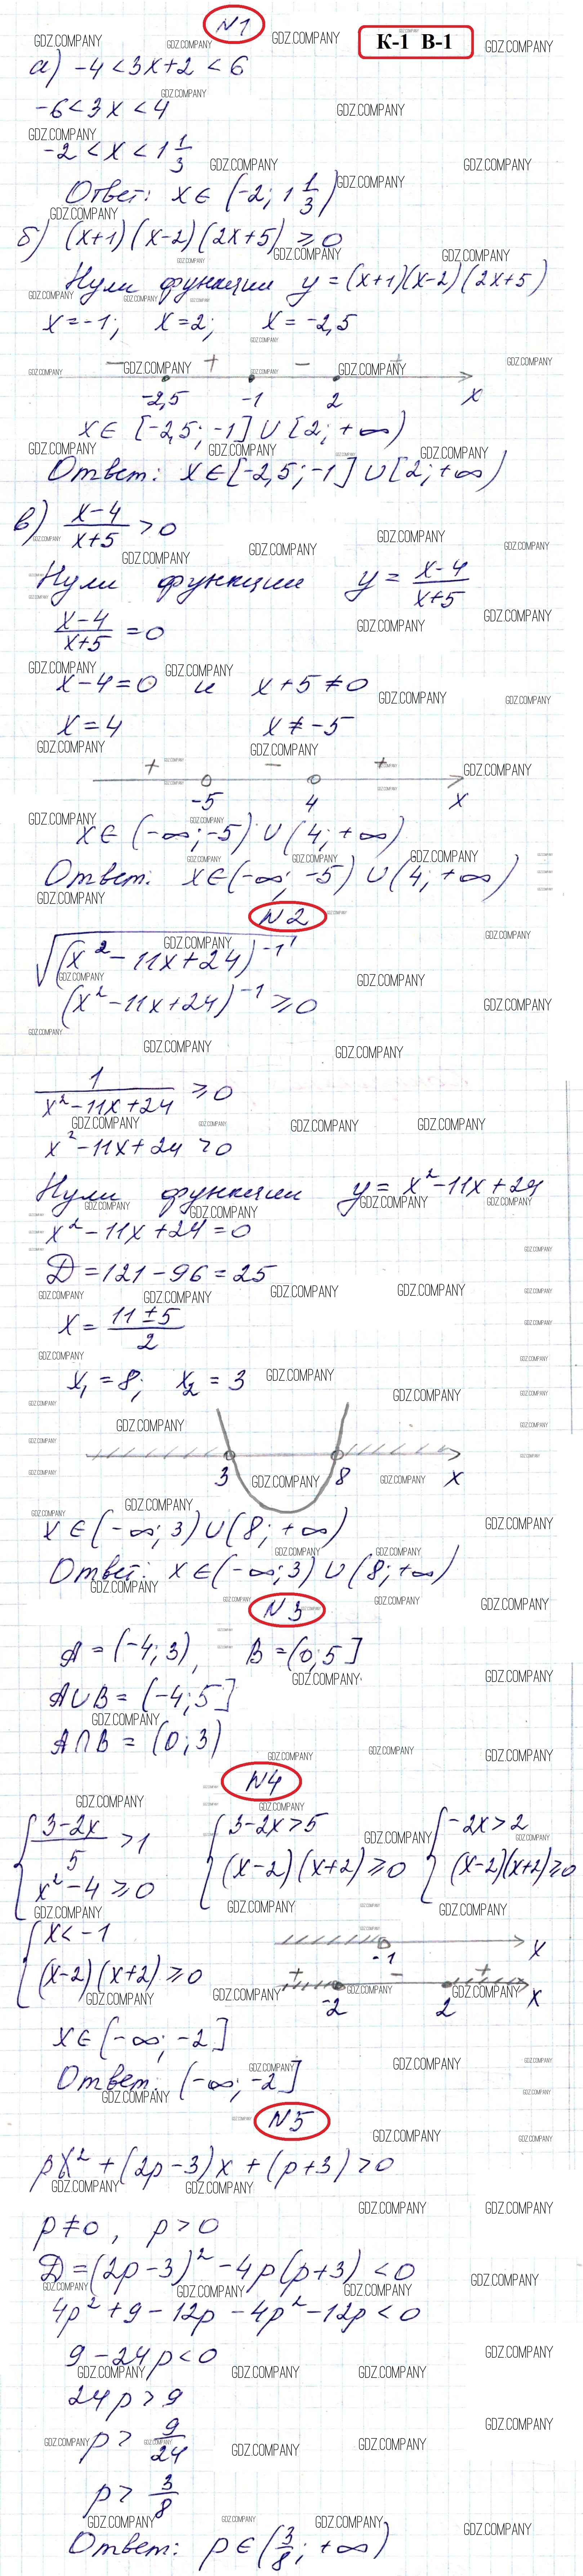 N1
К-1 В-1
а) -4 < 3x+2 < 6
-6 < 3x < 4
-2 < x < 1 1/3
Ответ: x ∈ (-2; 1 1/3)
б) (x+1)(x-2)(2x+5) ≥ 0
Нули функции y = (x+1)(x-2)(2x+5)
x = -1; x = 2; x = -2,5
- + - +
-2,5 -1 2 x
x ∈ [-2,5; -1] ∪ [2; +∞)
Ответ: x ∈ [-2,5; -1] ∪ [2; +∞)
в) (x-4)/(x+5) > 0
Нули функции y = (x-4)/(x+5)
(x-4)/(x+5) = 0
x-4 = 0 и x+5 ≠ 0
x = 4 x ≠ -5
+ - +
-5 4 x
x ∈ (-∞; -5) ∪ (4; +∞)
Ответ: x ∈ (-∞; -5) ∪ (4; +∞)
N2
√((x²-11x+24)⁻¹)
(x²-11x+24)⁻¹ ≥ 0
1/(x²-11x+24) ≥ 0
x²-11x+24 > 0
Нули функции y = x²-11x+24
x²-11x+24 = 0
D = 121-96 = 25
x = (11±5)/2
x₁ = 8; x₂ = 3
3 8 x
x ∈ (-∞; 3) ∪ (8; +∞)
Ответ: x ∈ (-∞; 3) ∪ (8; +∞)
N3
A = (-4; 3), B = (0; 5]
A∪B = (-4; 5]
A∩B = (0; 3)
N4
{ (3-2x)/5 > 1 { 3-2x > 5 { -2x > 2
x²-4 ≥ 0 (x-2)(x+2) ≥ 0 (x-2)(x+2) ≥ 0
{ x < -1
-1 x
(x-2)(x+2) ≥ 0
+ - +
-2 2 x
x ∈ (-∞; -2]
Ответ: (-∞; -2]
N5
px² + (2p-3)x + (p+3) > 0
p ≠ 0, p > 0
D = (2p-3)² - 4p(p+3) < 0
4p² + 9 - 12p - 4p² - 12p < 0
9 - 24p < 0
24p > 9
p > 9/24
p > 3/8
Ответ: p ∈ (3/8; +∞)
GDZ.COMPANY